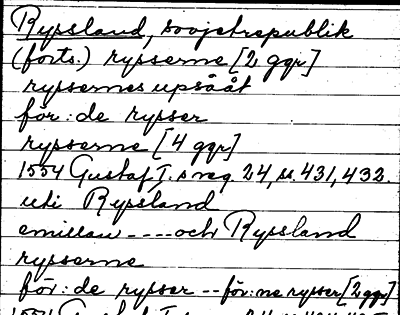 Ryssland, sovjetrepublik
(forts.) rysserne [2 ggr]
ryssernes upsååt
för: de rysser
rysserne [4 ggr]
1554 Gustaf I:s reg. 24, s. 431, 432.
uti Ryssland
emillan ---- och Ryssland
rysserne
för: de rysser -- för: ne rysser [2 ggr]